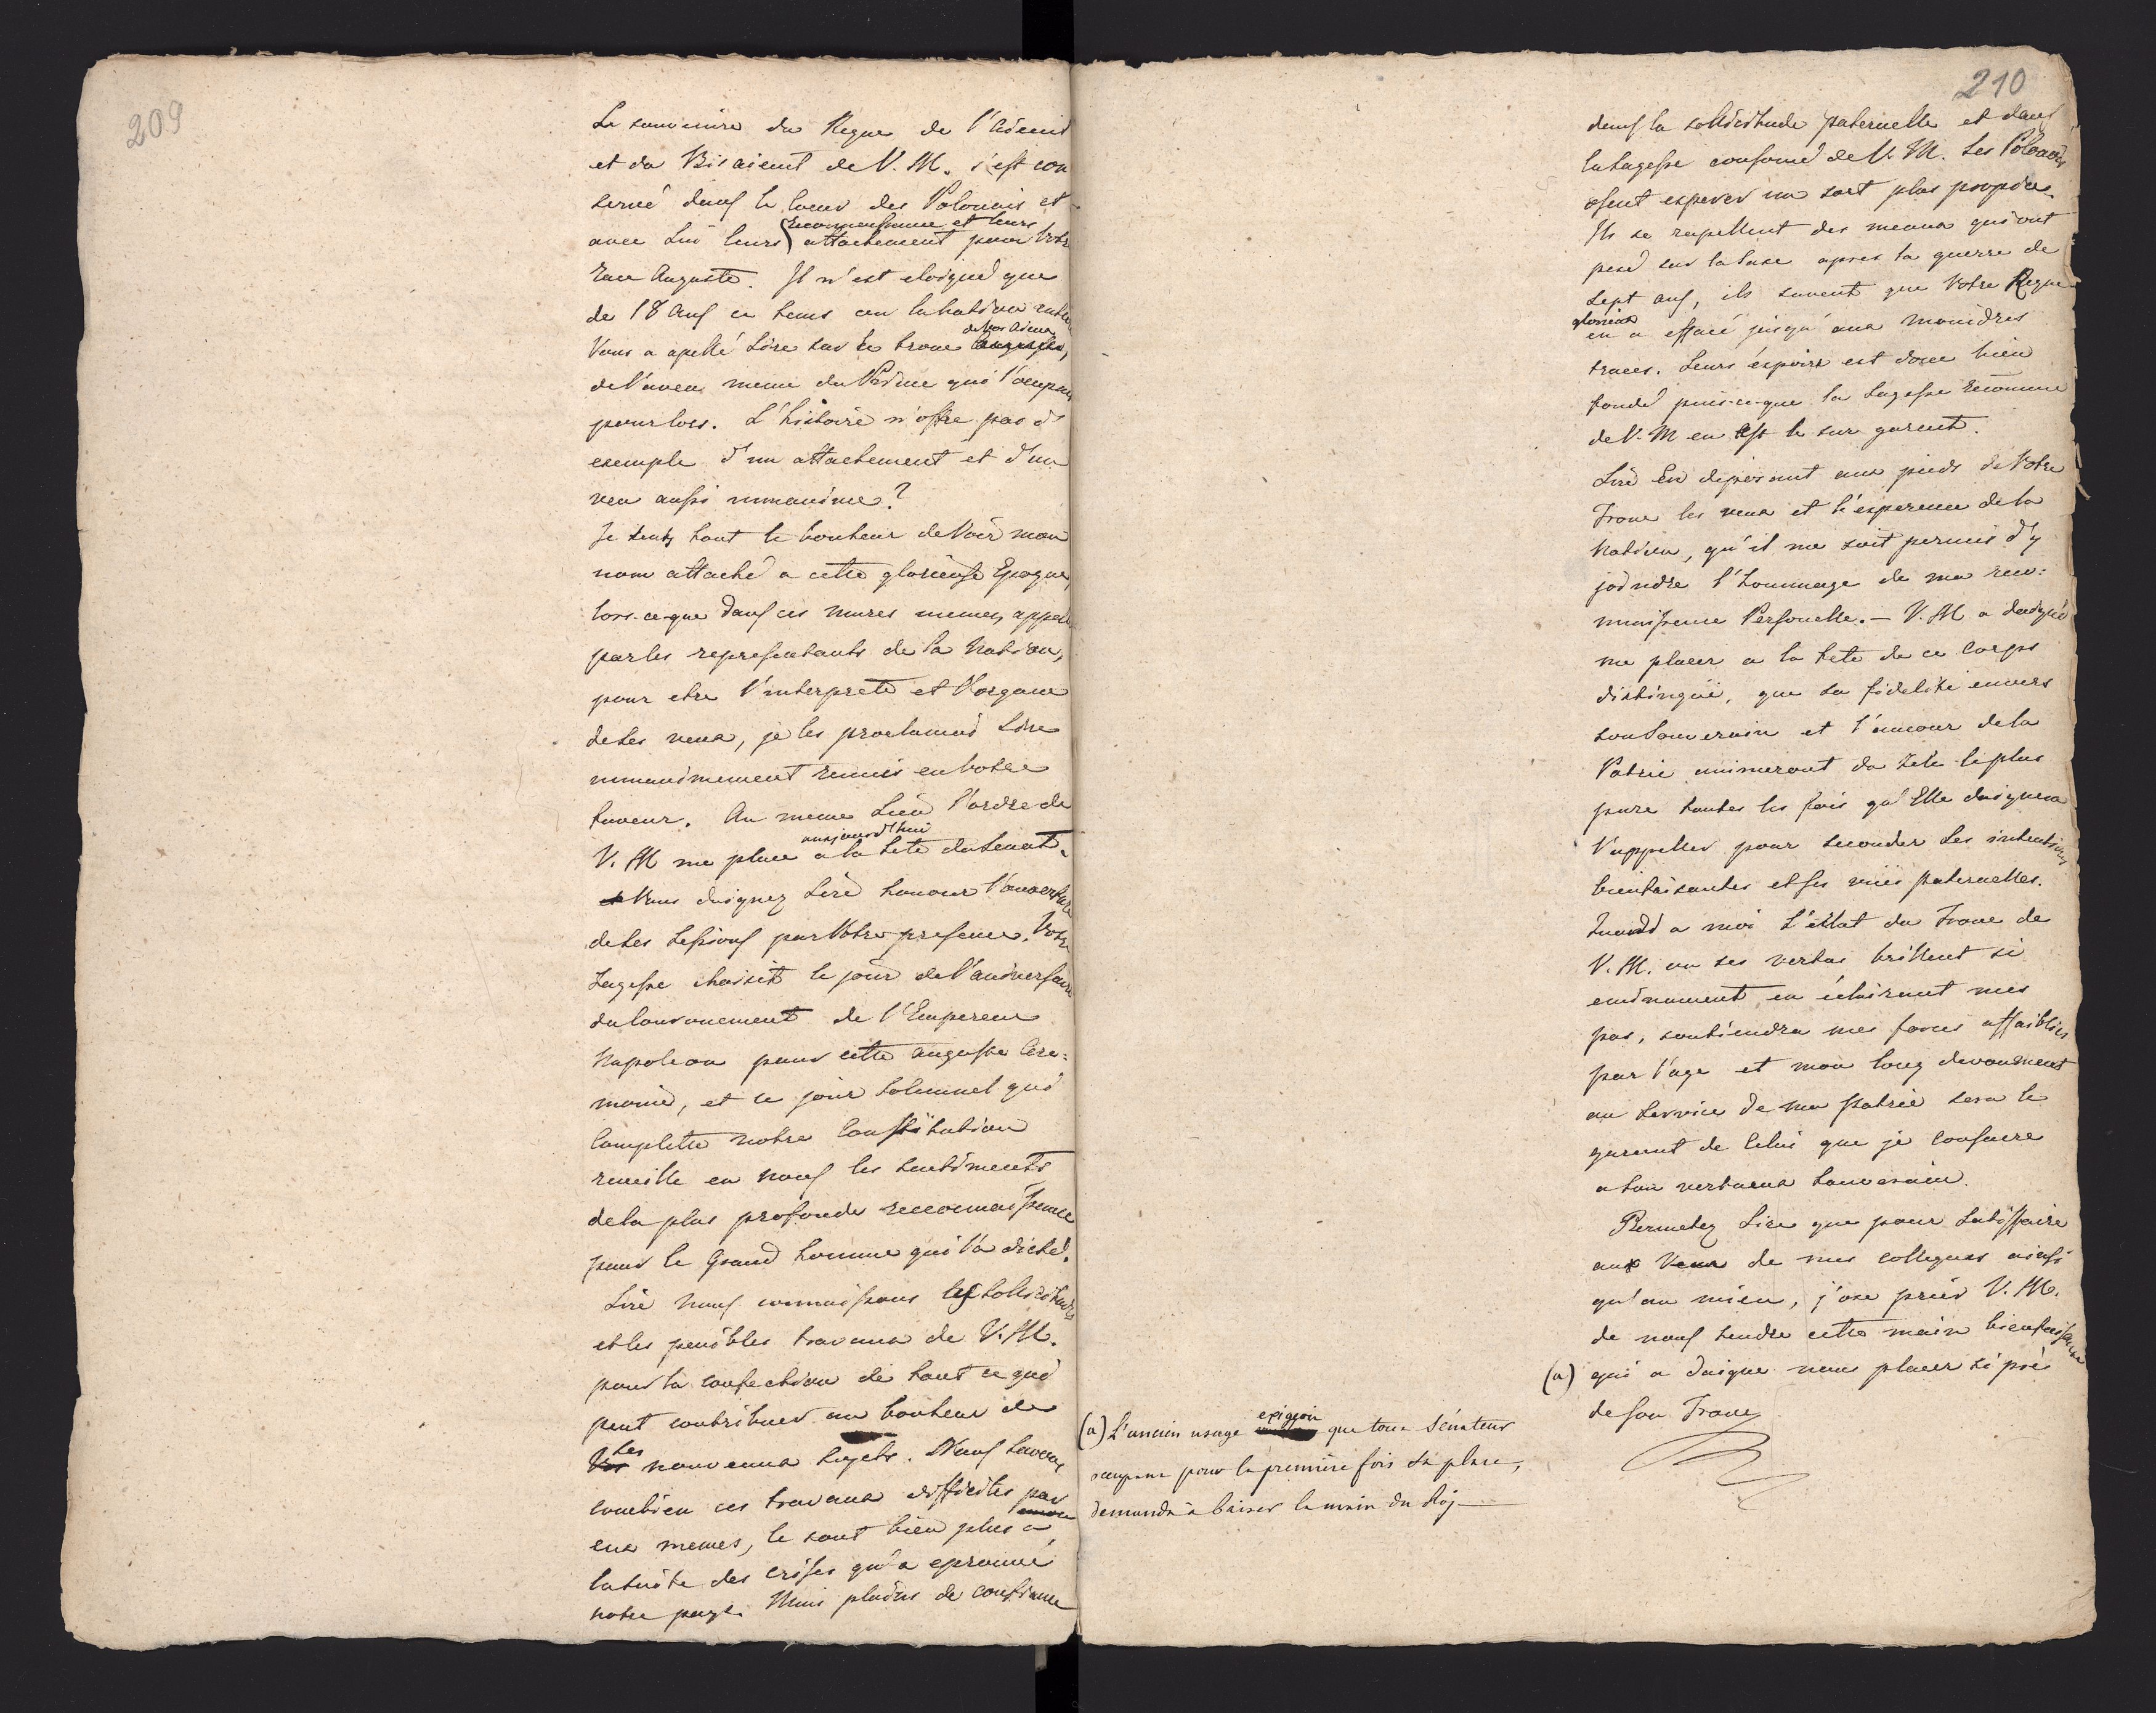 209
Le souvenire du Regne de l'Aieul
et du Bisaieul de V. M. s'est con
servé dans le coeur des Polonais et
avec Lui leurs reconnaissance et leurs attachement pour Votre
race Auguste. Il n'est eloigné que
de 18 ans ce tems ou la Nation entiere
Vous a apellé Sire sur le trone de Vos Aieux
de l'aveu meme du Prince qui l'ocupait
pour lors. L'histoire n'offre pas d'
exemple d'un attachement et d'un
veu aussi unnanime?
Je sents tout le bonheur de Voir mon
nom attaché a cette glorieuse Epoque,
lors-ce-que dans ces mures memes, appellé
par les representants de la Nation,
pour etre l'interprete et l'organe
de Ses veux, je les proclamai Sire
unnanimement reunis en Votre
faveur. Au meme Lieu l'ordre de
V. M me place aujourd'hui a la tete du Senat.
Vous daignez Sire honorer l'ouverture
de Ses Sessions par Votre presence. Votre
Sagesse choisit le jour de l'anniversaire
du Couronnement de l'Empereur
Napoleon pour cette auguste Cere:
monie, et ce jour Solemnel qui
complette notre Constitution
reveille en nous les sentiments
de la plus profonde reconnaissance
pour le Grand homme qui l'a dicté.
Sire Nous connaissons les Sollicitudes
et les penibles travaux de V. M.
pour la confection de tout ce qui
peut contribuer au bonheur de
Ses nouveaux Sujets. Nous Savons
combien ces travaux difficiles par
eux memes, le sont bien plus a
la suite des crises qu'a eprouvé
notre pays. Mais pleins de confiance
210
dans la sollicitude paternelle et dans
la Sagesse consomé de V. M. Les Polonais
osent esperer un sort plus propice.
Ils se rapellent des meaux qui ont
pesé sur la Saxe apres la guerre de
Sept ans, ils savent que Votre Regne
glorieux en a effacé jusqu'aux moindres
traces. Leurs espoire est donc bien
fondé puis-ce-que la Sagesse reconnue
de V. M en est le sur garent.
Sire En deposant aux pieds de Votre
Trone les veux et l'esperence de la
Nation, qu'il me soit permis d'y
joindre l'hommage de ma reco:
nnaissence Personelle. — V. M a daigné
me placer a la tete de ce Corps
distingué, que sa fidelité envers
son Souverain et l'amour de la
Patrie animeront du Zele le plus
pure toutes les fois qu'Elle daignera
l'appeller pour seconder Ses intentions
bienfaisantes et ses vües paternelles.
Quand a moi L'éclat du Trone de
V. M. ou ses vertus brillent si
eminament en éclairant mes
pas, soutiendra mes forces affaiblies
par l'age et mon long devouement
au Service de ma Patrie sera le
garent de Celui que je consacre
a Son vertueux Souverain.
Permetez Sire que pour Satisffaire
aux Veux de mes collegues ainsi
qu'au mien, j'ose prier V. M.
de nous tendre cette main bienfaisante
(a) qui a daigné nous placer si prés
de Son Trone
(a) L'ancien usage exigeoit que tout Sénateur
occupant pour la première fois sa place,
demanda à baiser la main du Roj —